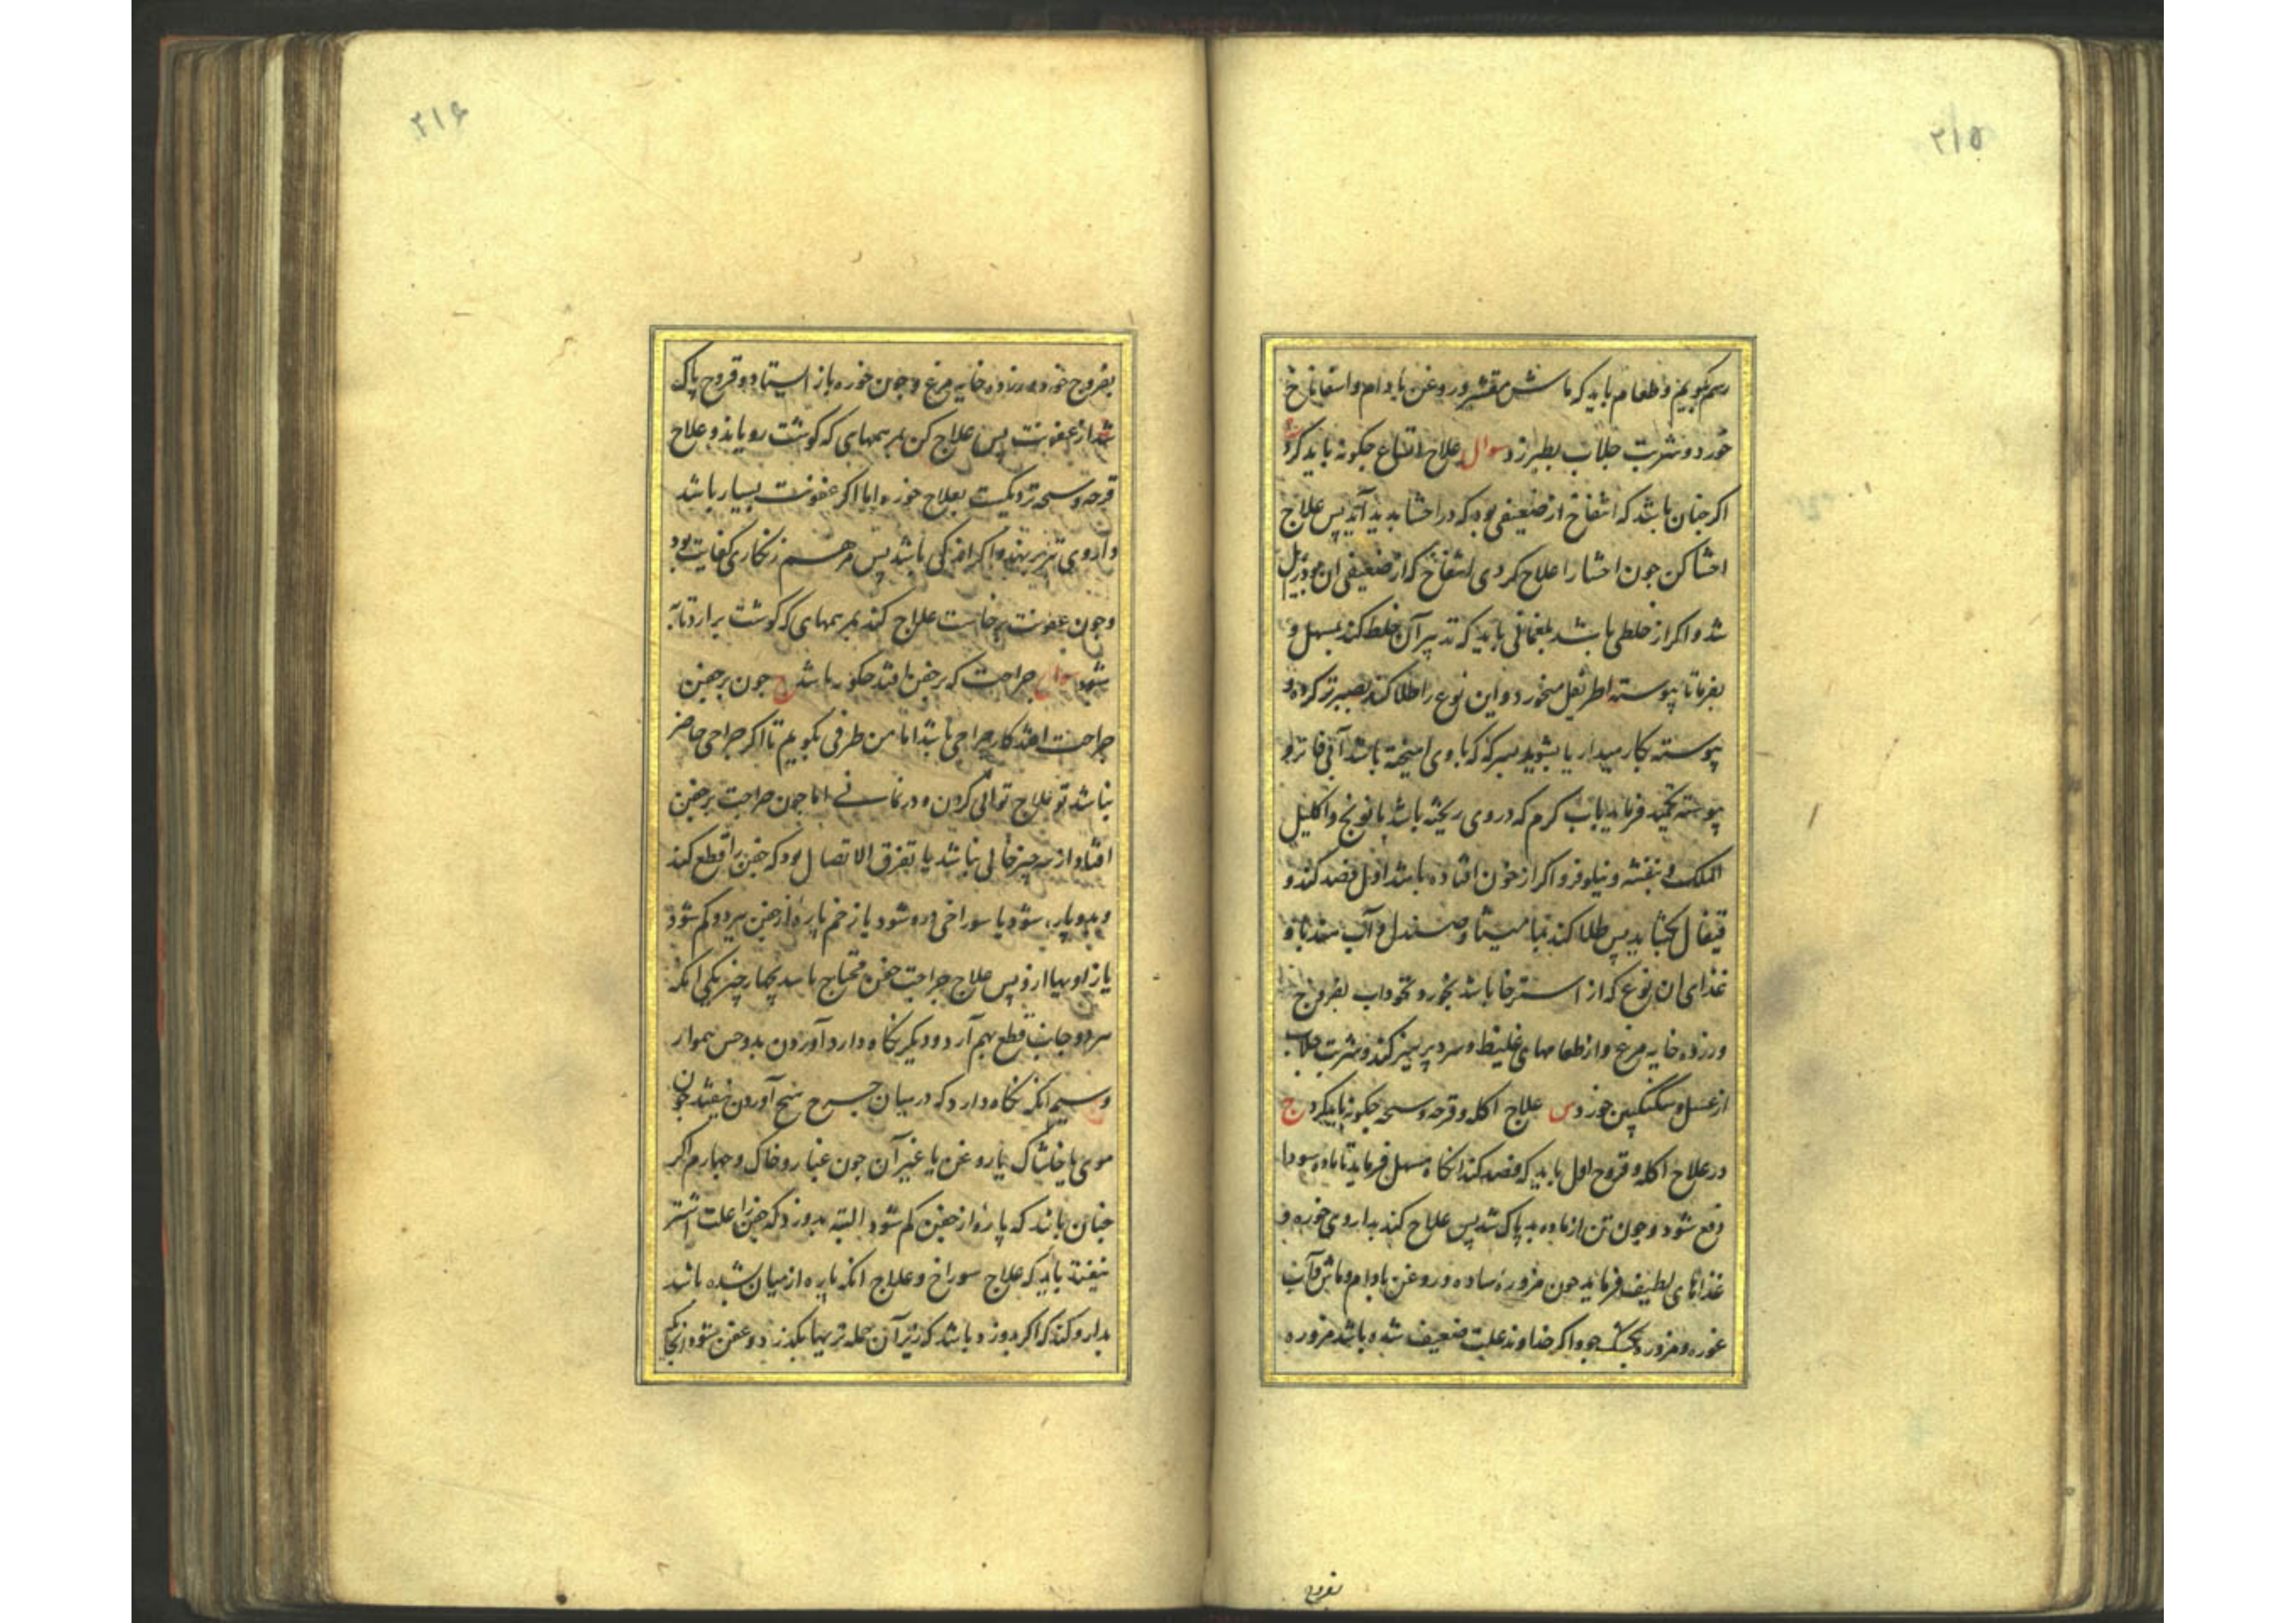 ۲۱۵
رسم بگوییم و طعام باید که ماش مقشر و روغن بادام و اسفاناخ
خورد و شربت جلاب بطبرزد سوال علاج انتفاخ چکونه باید کرد
اکر چنان باشد که انتفاخ از ضعیفی بود که در احشا پدید آید پس علاج
احشا کن چون احشا را علاج کردی انتفاخ که از ضعیفی ان بود زایل
شد و اکر از خلطی باشد بلغمانی باید که تدبیر آن خلط کند بمسهل و
بفرما تا پیوسته اطریفل میخورد و این نوع را طلا کند بصبر تر کرده و
پیوسته بکار میدار یا بشوید بسرکه که با وی امیخته باشد آبی فاتر و
پیوسته تکمید فرماید بآب کرم که در وی ریخته باشد بابونج و اکلیل
الملک و بنفشه و نیلوفر و اکر از خون افتاده باشد اول فصد کند و
قیفال بکشاید پس طلا کند بمامیثا و صندل و آب هندبا و
غذای ان نوع که از استرخا باشد بخور و نخوداب بفروج
و زرده خایه مرغ و از طعامهای غلیظ و سرد پرهیز کند و شربت جلاب
از عسل و سکنکبین خورد س علاج اکله و قرحه و سحه چکونه باید کرد ج
در علاج اکله و قروح اول باید که فصد کند انکاه مسهل فرماید تا ماده سودا
دفع شود و چون تن از ماده بد پاک شد پس علاج کند بداروی خوره و
غذاهای لطیف فرماید چون مزوره ساده و روغن بادام و ماش و آب
غوره و مزوره بکشک جو و اکر خداوند علت ضعیف شده باشد مزوره
بفروج
۲۱۶
بفروج خورد و زرده خایه مرغ و چون خوره باز استاد و قروح پاک
شد از عفونت پس علاج کن بمرهمهای که کوشت رویاند و علاج
قرحه و سحه نزدیکست بعلاج خوره اما اکر عفونت بسیار باشد
داروی تیز بر نهد و اکر اندکی باشد پس مرهم زنکاری کفایت بود
و چون عفونت برخاست علاج کند بمرهمهای که کوشت برارد تا به
شود سوال جراحت که بر جفن افتد چکونه باشد ج چون بر جفن
جراحت افتد کار جراحی باشد اما من طرفی بکویم تا اکر جراحی حاضر
نباشد تو علاج توانی کردن و در نمانی اما چون جراحت بر جفن
افتاد از سه چیز خالی نباشد یا تفرق الاتصال بود که جفن را قطع کند
و بدو پاره شود یا سوراخی در شود یا زخم پاره از جفن ببرد و کم شود
یا زاویها ازو پس علاج جراحت جفن محتاج باشد بچهار چیز یکی انکه
هر دو جانب قطع بهم آرد و دیکر نکاه دارد آوردن بدوختن هموار
و سیم انکه نکاه دارد که در میان جرح هیچ آوردن نیفتد چون
موی یا خاشاک یا روغن یا غیر آن چون غبار و خاک و چهارم اکر
چنان باشد که پاره از جفن کم شود البته بدوزد که جفن را علت اشتر
نیفتد باید که علاج سوراخ و علاج انکه پاره از میان شده باشد
بدارو کند که اکر بدوزد باشد که زیر آن جمله تریها بکذرد و عفن شود و انجا